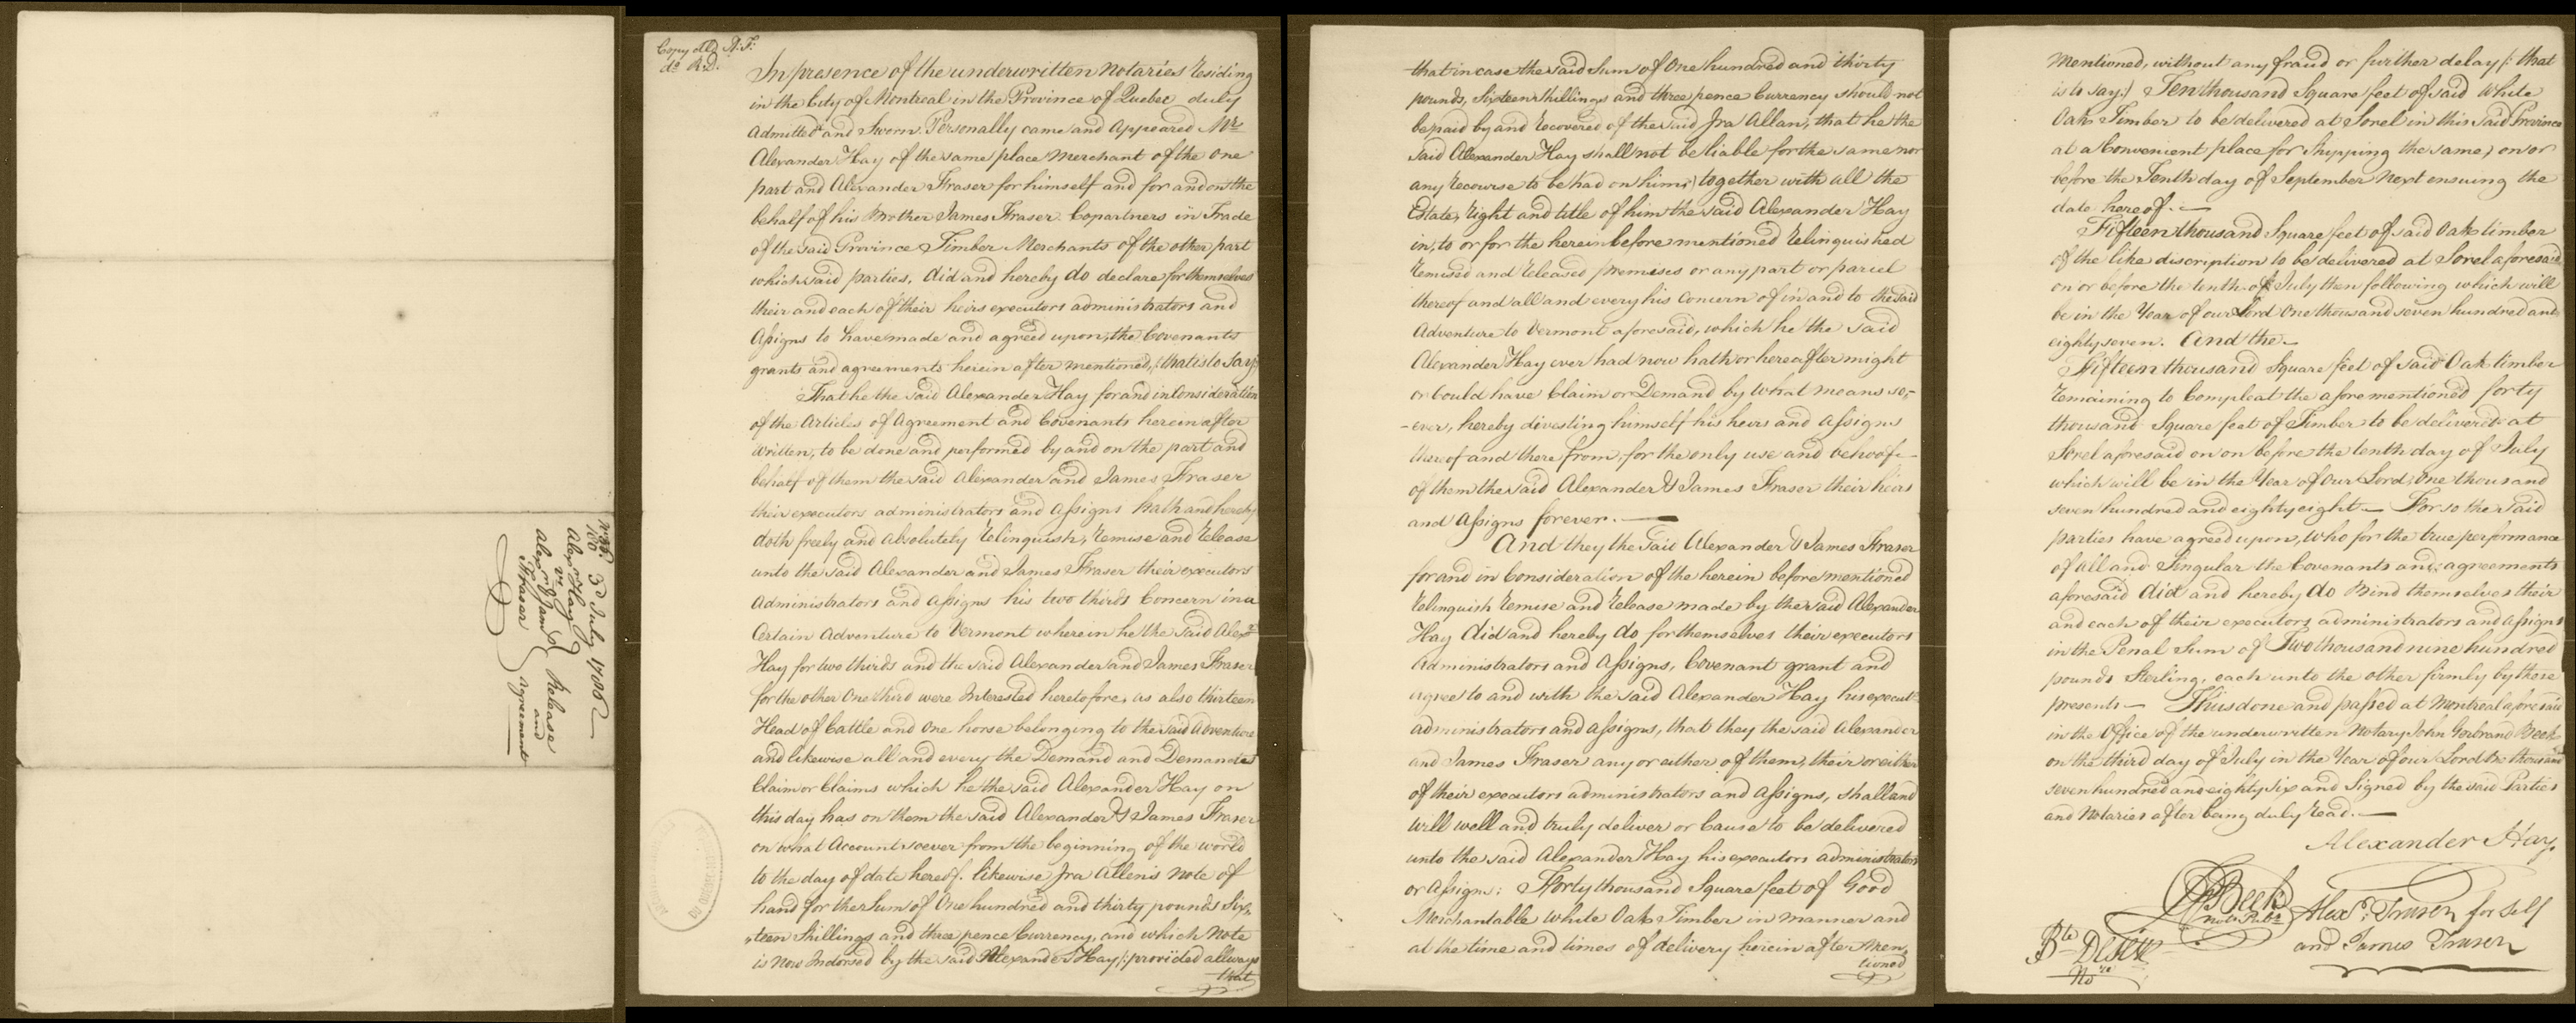 No. 33.
180
3d July 1786
Alexr. Hay
vs.
Alexr. & Jams.
Fraser
Release
and
agreement
Copy dld. A: F:
do. R.D.
In presence of the underwritten Notaries Residing
in the City of Montreal in the Province of Quebec duly
admitted and Sworn. Personally came and Appeared Mr.
Alexander Hay of the same place Merchant of the one
part and Alexander Fraser for himself and for and on the
behalf of his Brother James Fraser Copartners in Trade
of the said Province Timber Merchants of the other part
which said parties, did and hereby do declare for themselves
their and each of their heirs executors administrators and
Assigns to have made and agreed upon, the Covenants
grants and agreements herein after mentioned, (: that is to say:)
That he the said Alexander Hay for and in Consideration
of the Articles of Agreement and Covenants herein after
written, to be done and performed by and on the part and
behalf of them the said Alexander and James Fraser
their executors administrators and Assigns hath and hereby
doth freely and absolutely Relinquish, Remise and Release
unto the said Alexander and James Fraser their executors
Administrators and Assigns his two thirds Concern in a
Certain Adventure to Vermont wherein he the said Alexr.
Hay for two thirds and the said Alexander and James Fraser
for the other One third were Interested heretofore, as also thirteen
Head of Cattle and One horse belonging to the said Adventure
and likewise all and every the Demand and Demands
Claim or Claims which he the said Alexander Hay on
this day has on them the said Alexander & James Fraser
on what Account soever from the beginning of the world
to the day of date hereof. likewise Ira Allen's Note of
hand for the Sum of One hundred and thirty pounds Six-
-teen Shillings and three pence Currency, and which Note
is Now Indorsed by the said Alexander Hay (: provided allways
that
that in case the said Sum of One hundred and thirty
pounds, Sixteen Shillings and three pence Currency should not
be paid by and Recovered of the said Ira Allan, that he the
said Alexander Hay shall not be liable for the same nor
any Recourse to be had on him :) together with all the
Estate, Right and title of him the said Alexander Hay
in, to or for the herein before mentioned Relinquished
Remised and Released premises or any part or parcel
thereof and all and every his Concern of in and to the said
Adventure to Vermont aforesaid, which he the said
Alexander Hay ever had now hath or hereafter might
or Could have Claim or Demand by what means so-
-ever, hereby divesting himself his heirs and Assigns
thereof and there from, for the only use and behoofe
of them the said Alexander & James Fraser their heirs
and Assigns forever.
And they the said Alexander & James Fraser
for and in Consideration of the herein before mentioned
Relinquish Remise and Release made by the said Alexander
Hay did and hereby do for themselves their executors
Administrators and Assigns, Covenant grant and
agree to and with the said Alexander Hay his executrs.
administrators and Assigns, that they the said Alexander
and James Fraser any or either of them, their or either
of their executors administrators and Assigns, shall and
will well and truly deliver or Cause to be delivered
unto the said Alexander Hay his executors administrators
or Assigns: Forty thousand Square feet of Good
Merchantable White Oak Timber in manner and
at the time and times of delivery herein after men-
tioned
Mentioned, without any fraud or further delay (: that
is to say:) Ten thousand Square feet of said White
Oak Timber to be delivered at Sorel in this said Province
at a Convenient place for Shipping the same, on or
before the Tenth day of September Next ensuing the
date hereof.
Fifteen thousand Square feet of said Oak timber
of the like discription to be delivered at Sorel aforesaid
on or before the tenth of July then following which will
be in the Year of our Lord One thousand seven hundred and
eighty seven. And the
Fifteen thousand Square feet of said Oak timber
Remaining to Compleat the aforementioned forty
thousand Square feet of Timber to be delivered at
Sorel aforesaid on on before the tenth day of July
which will be in the Year of Our Lord, One thousand
seven hundred and eighty eight — For so the said
parties have agreed upon, Who for the true performance
of all and Singular the Covenants and agreements
aforesaid did and hereby do Bind themselves their
and each of their executors administrators and Assigns
in the Penal Sum of Two thousand nine hundred
pounds Sterling, each unto the other firmly by these
presents — Thus done and passed at Montreal aforesaid
in the Office of the underwritten Notary John Gerbrand Beek
on the third day of July in the Year of our Lord One thousand
seven hundred and eighty six and Signed by the said Parties
and Notaries after being duly Read.
Alexander Hay.
Beek
Not. Pub.
Alexr. Fraser for Self
and James Fraser
Bte. Deseve
Nore.